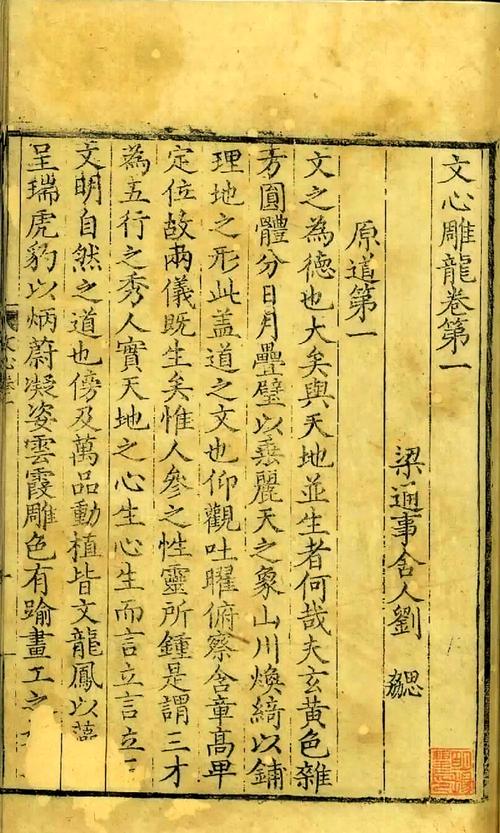 文心雕龍卷第一
梁通事舍人劉勰
原道第一
文之為德也大矣與天地並生者何哉夫玄黃色雜
方圓體分日月疊璧以垂麗天之象山川煥綺以鋪
理地之形此盖道之文也仰觀吐曜俯察含章高卑
定位故兩儀既生矣惟人參之性靈所鍾是謂三才
為五行之秀人實天地之心生心生而言立言立
文明自然之道也傍及萬品動植皆文龍鳳以藻
呈瑞虎豹以炳蔚凝姿雲霞雕色有踰畫工之